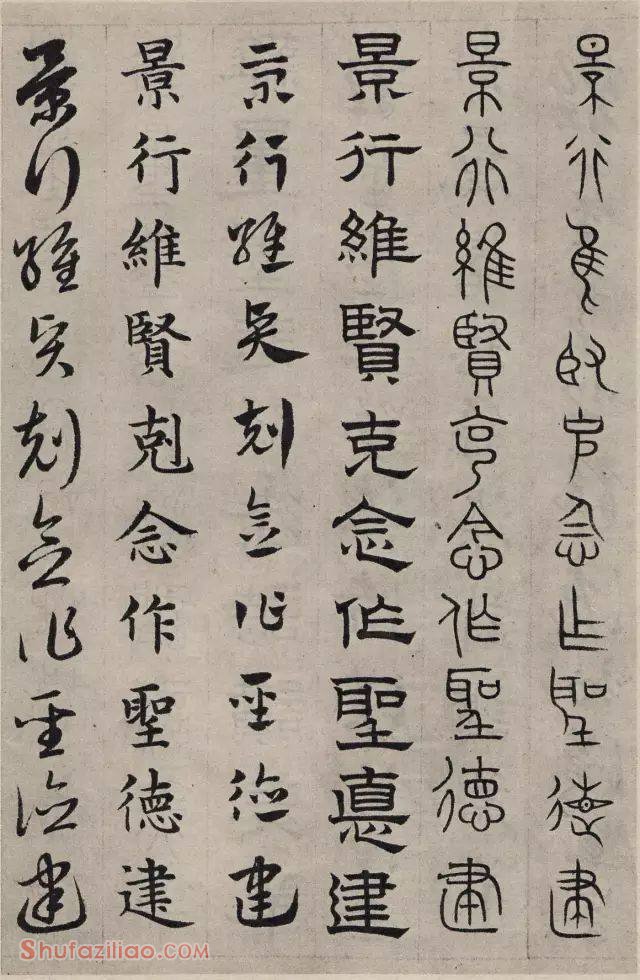 景行隹臤克念乍聖德建
景行維賢克念作聖德建
景行維賢克念作聖悳建
景行維賢剋念作聖德建
景行維賢剋念作聖德建
景行維賢剋念作聖德建
Shufaziliao.COM